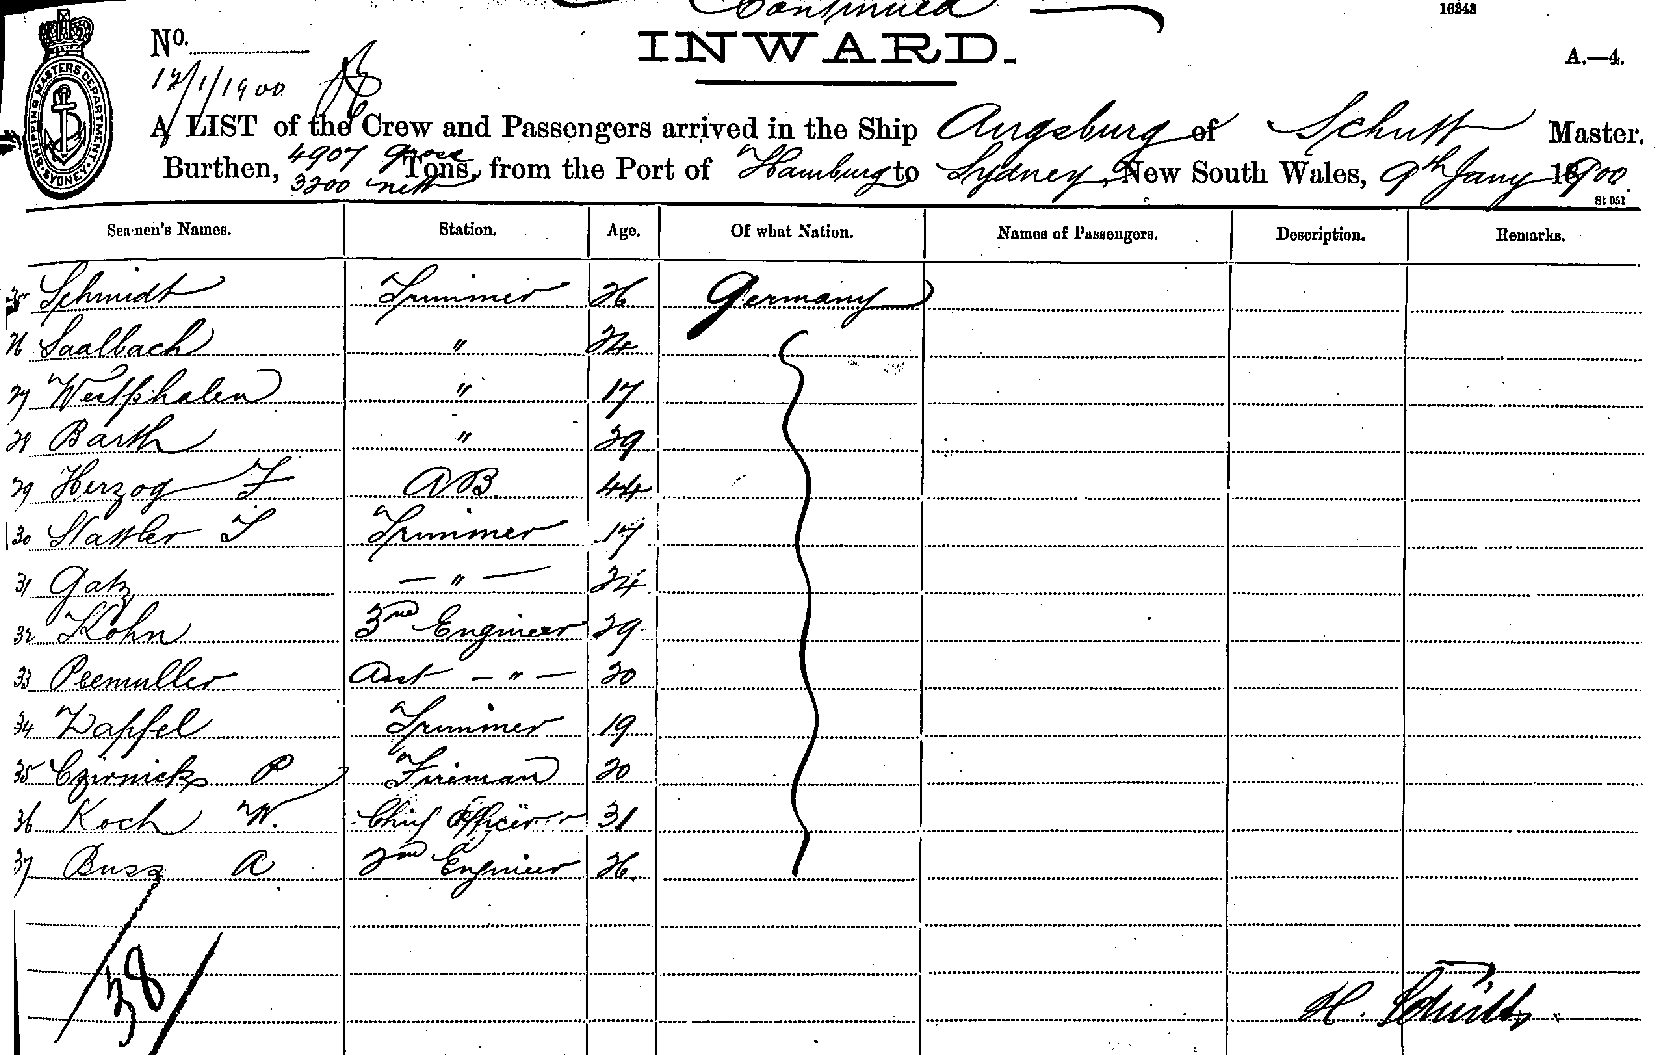 Continued
16243
No.
INWARD.
A.—4.
12/1/1900
A LIST of the Crew and Passengers arrived in the Ship Augsburg of Schutt Master.
Burthen, 4907 gross 3200 nett Tons, from the Port of Hamburg to Sydney, New South Wales, 9th Jany 1900.
Seamen's Names. Station. Age. Of what Nation. Names of Passengers. Description. Remarks.
25 Schmidt Trimmer 26 Germany
26 Saalbach " 24
27 Westphalen " 17
28 Barth " 29
29 Herzog F AB. 44
30 Trimmer 17
31 Gatz — " — 24
32 Kohn 3rd Engineer 29
33 Peemuller Asst — " — 20
34 Zapfel Trimmer 19
35 P Fireman 20
36 Koch W. Chief Officer 31
37 Buss A 2nd Engineer 26.
38
H. Schütt
SHIPPING MASTERS DEPARTMENT SYDNEY